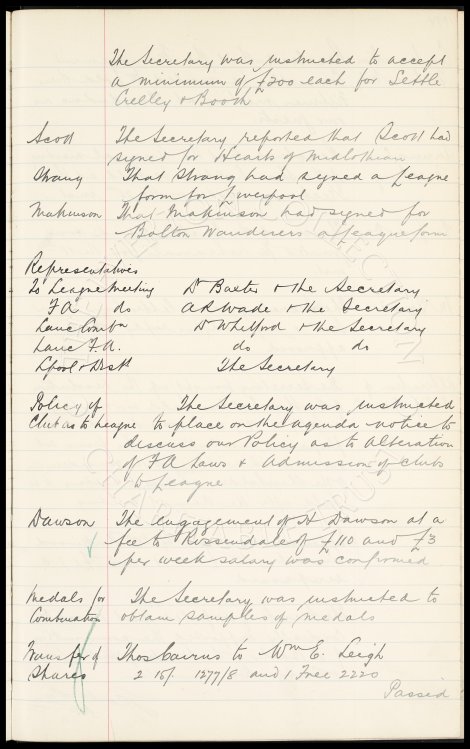 The Secretary was instructed to accept
a minimum of £200 each for Settle
Crelley & Booth
Scott The Secretary reported that Scott had
signed for Hearts of Midlothian
Strang That Strang had signed a League
form for Liverpool
Makinson That Makinson had signed for
Bolton Wanderers a League form
Representatives
To League Meeting Dr Baxter & the Secretary
FA do A R Wade & the Secretary
Lanc Combn Dr Whitford & the Secretary
Lanc F.A. do do
Lpool & Dist The Secretary
Policy of The Secretary was instructed
Club as to League to place on the agenda notice to
discuss our Policy as to alteration
of FA Laws & admission of clubs
to League
Dawson The engagement of H Dawson at a
fee to Rossendale of £110 and £3
per week salary was confirmed
Medals for The Secretary was instructed to
Combination obtain samples of medals
Transfer of Thos Cairns to Wm E. Leigh
Shares 2 15/ 1277/8 and 1 Free 2220
Passed